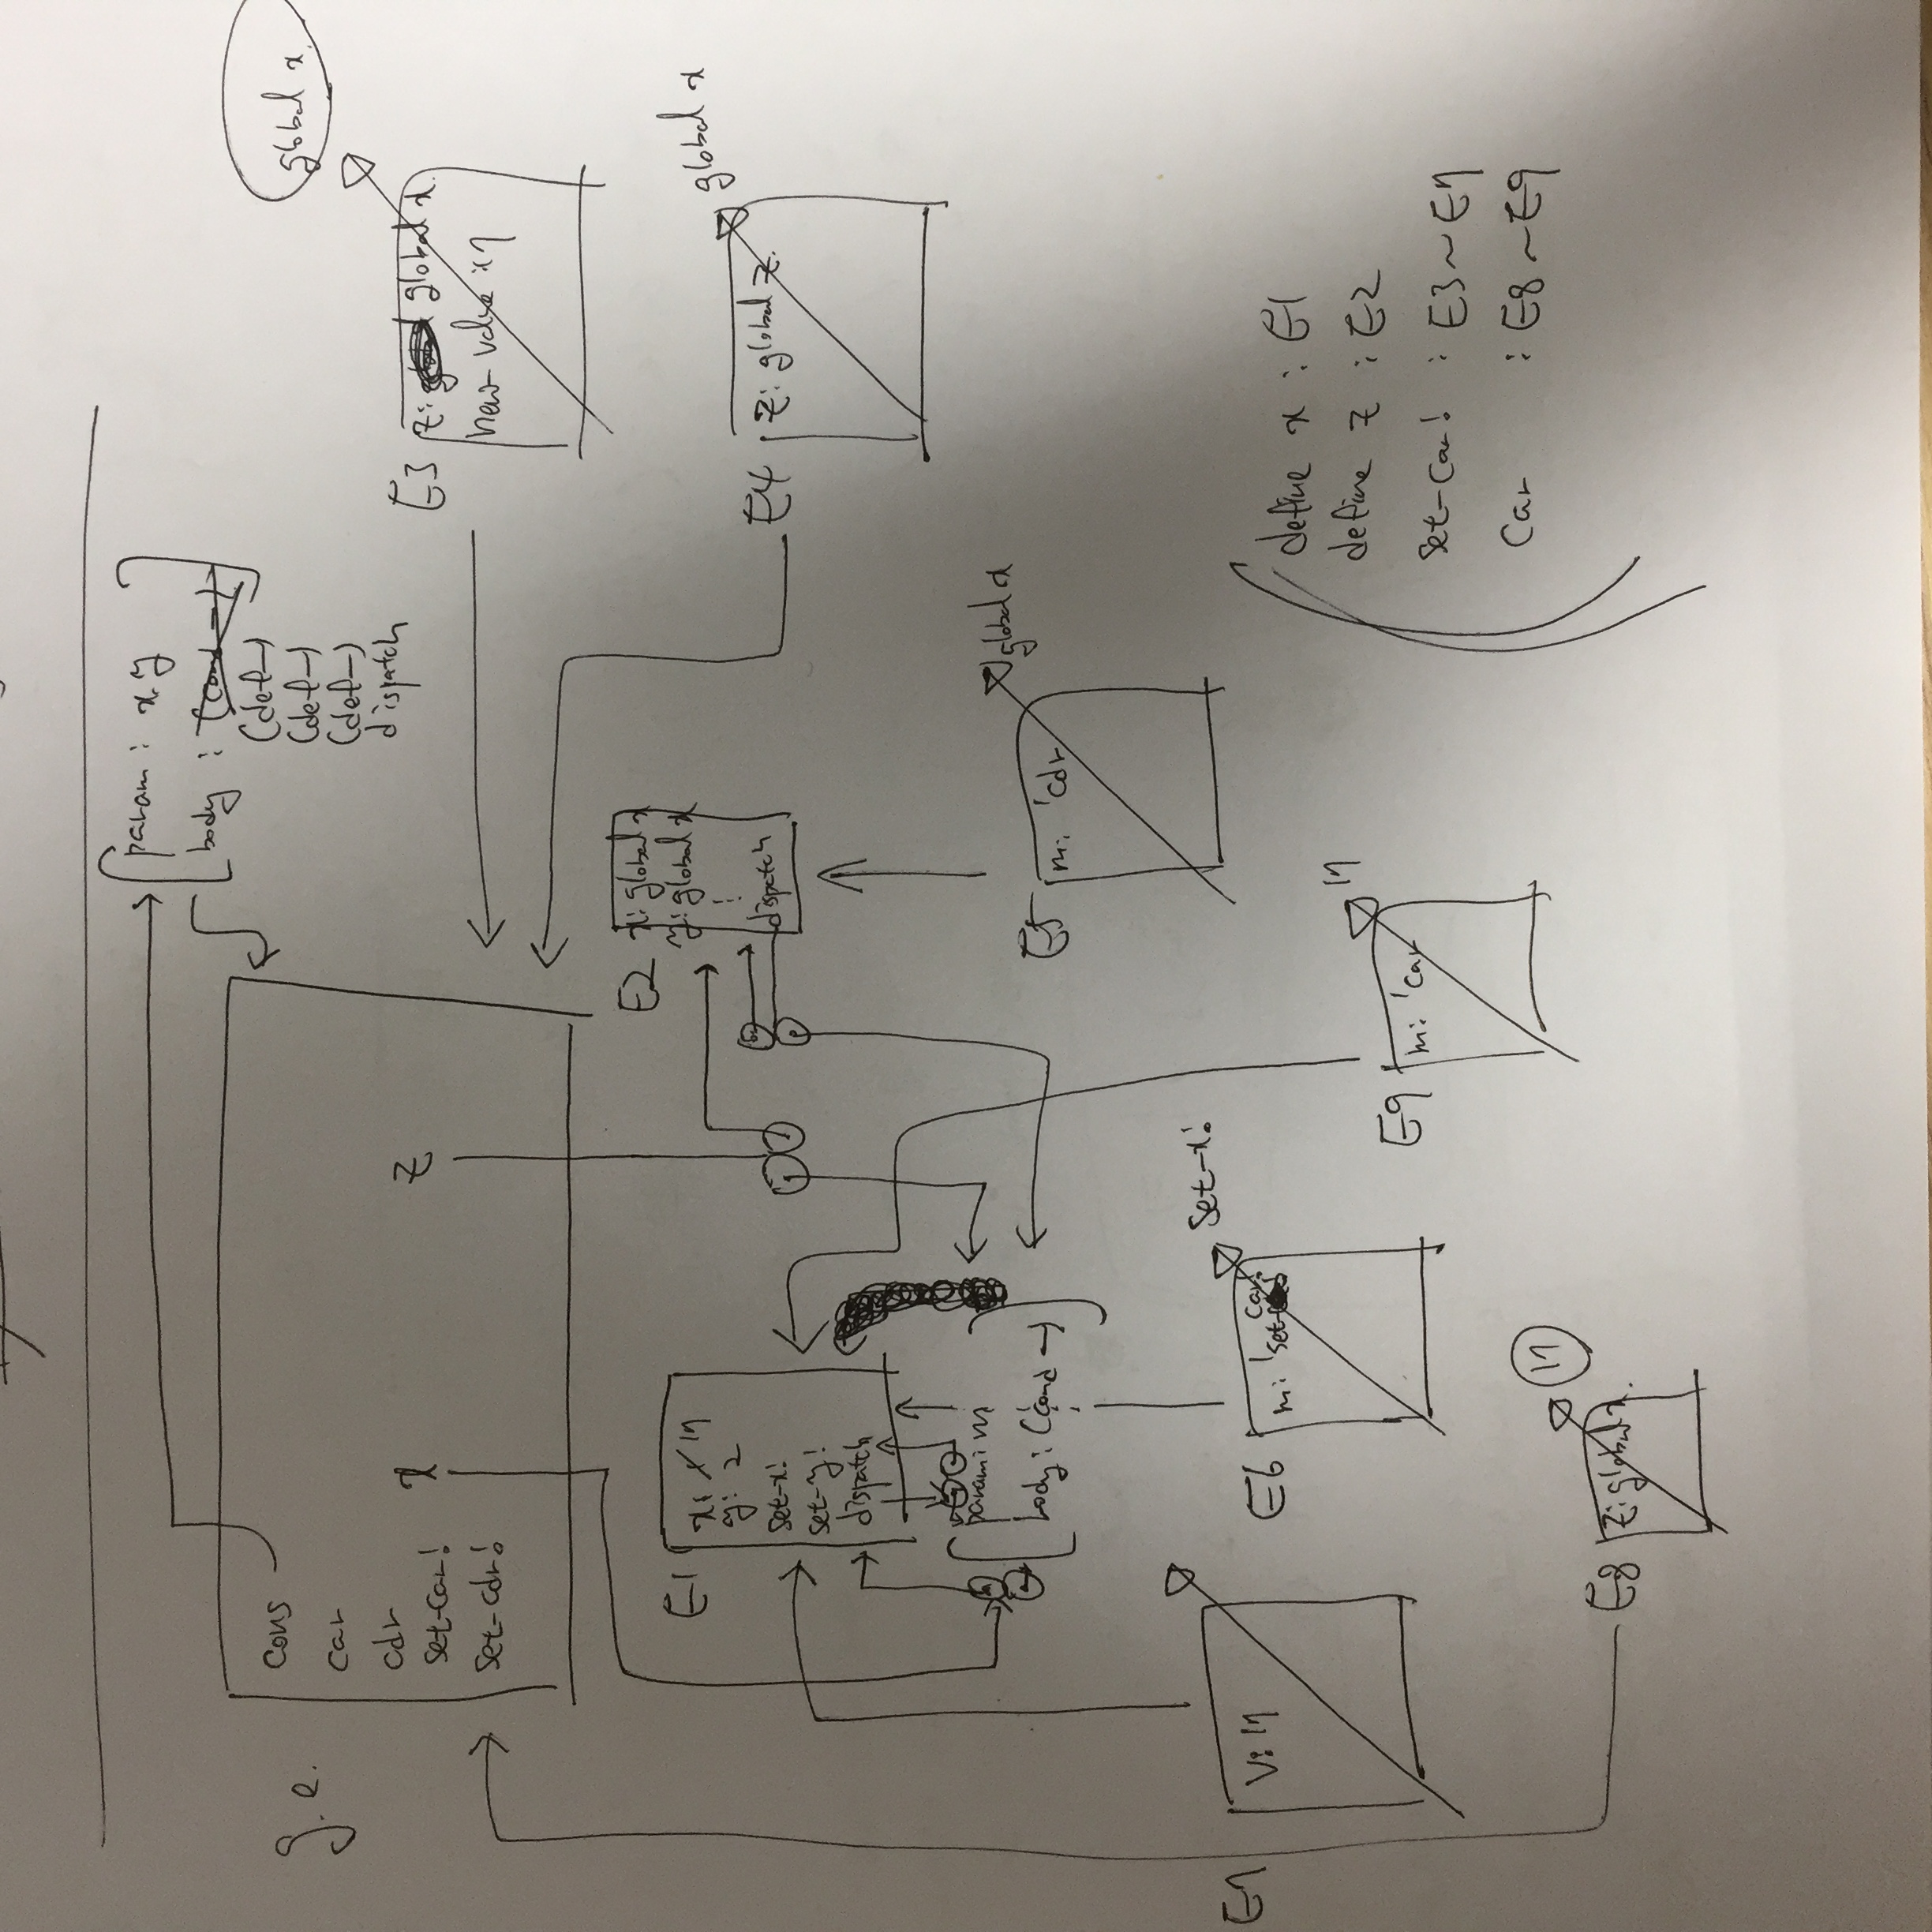 param : x y
body : (cond —)
(def—)
(def—)
(def—)
dispatch
g.e.
cons
car
cdr
set-car!
set-cdr!
x
z
global x.
E3
z: global x.
new-value : 17
E1
x: 1 17
y: 2
set-x!
set-y!
dispatch
param: m
body: (cond —)
E2
x: global x
y: global x
⋮
dispatch
E4
z: global z.
global x
E5
m: 'cdr
global x
E7
V: 17
E6
m: 'set-car!
set-x!
E9
m: 'car
17
E8
z: global x.
17
define x : E1
define z : E2
set-car! : E3~E7
Car : E8~E9